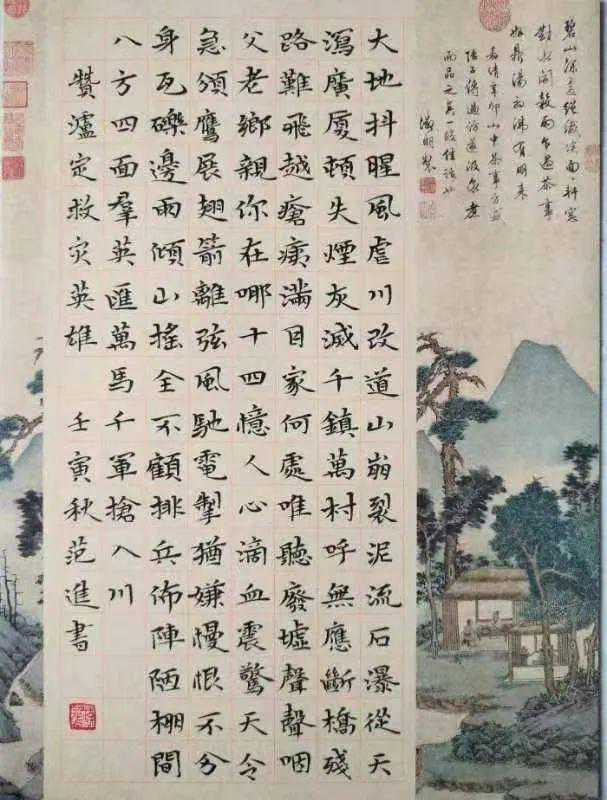 碧山深處絕纖埃面面軒窗
對水開穀雨乍過茶事
好鼎湯初沸有朋來
嘉靖辛卯山中茶事方盛
陸子傅過訪遂汲泉煮
而品之真一段佳話也
徵明製
大地抖腥風虐川改道山崩裂泥流石瀑從天
瀉廣厦頓失煙灰滅千鎮萬村呼無應斷橋殘
路難飛越瘡痍滿目家何處唯聽廢墟聲聲咽
父老鄉親你在哪十四憶人心滴血震驚天令
急頒鷹展翅箭離弦風馳電掣猶嫌慢恨不分
身瓦礫邊雨傾山搖全不顧排兵佈陣陋棚間
八方四面羣英匯萬馬千軍搶入川
贊瀘定救灾英雄 壬寅秋范進書